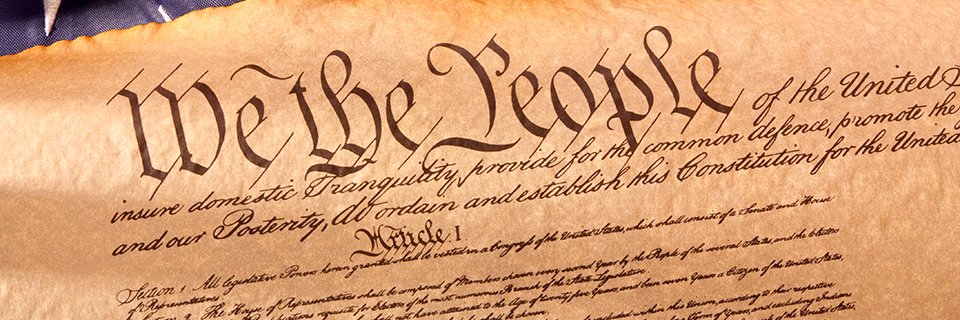 We the People of the United
insure domestic Tranquility, provide for the common defence, promote the
and our Posterity, do ordain and establish this Constitution for the United
Article I
Section 1. All legislative Powers herein granted shall be vested in a Congress of the United States, which shall consist of a Senate and House
of Representatives.
The House of Representatives shall be composed of Members chosen every second Year by the People of the several States, and the Electors
requisite for Electors of the most numerous Branch of the State Legislature.
shall not have attained to the Age of twenty five Years, and been seven Years a Citizen of the United States,
shall be chosen.
included within this Union, according to their respective
Term of Years, and excluding Indians